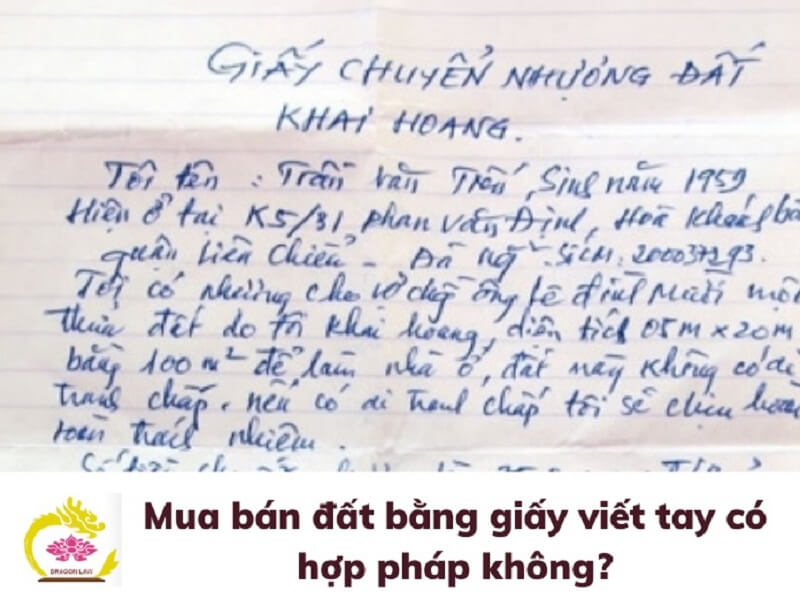 GIẤY CHUYỂN NHƯỢNG ĐẤT
KHAI HOANG.
Tôi tên : Trần Văn Tiến, Sinh năm 1959
Hiện ở tại K5/31 Phan Văn Định, Hoà Khánh bắ
quận Liên Chiểu - Đà Ng SCM: 200037293.
Tôi có nhường cho vợ chồng ông Lê đình Mười một
thửa đất do tôi khai hoang, diện tích 05m x 20m
bằng 100m² để làm nhà ở, đất này không có ai
tranh chấp. nếu có ai tranh chấp tôi sẽ chịu hoàn
toàn trách nhiệm.
DRAGON LAW
Mua bán đất bằng giấy viết tay có
hợp pháp không?